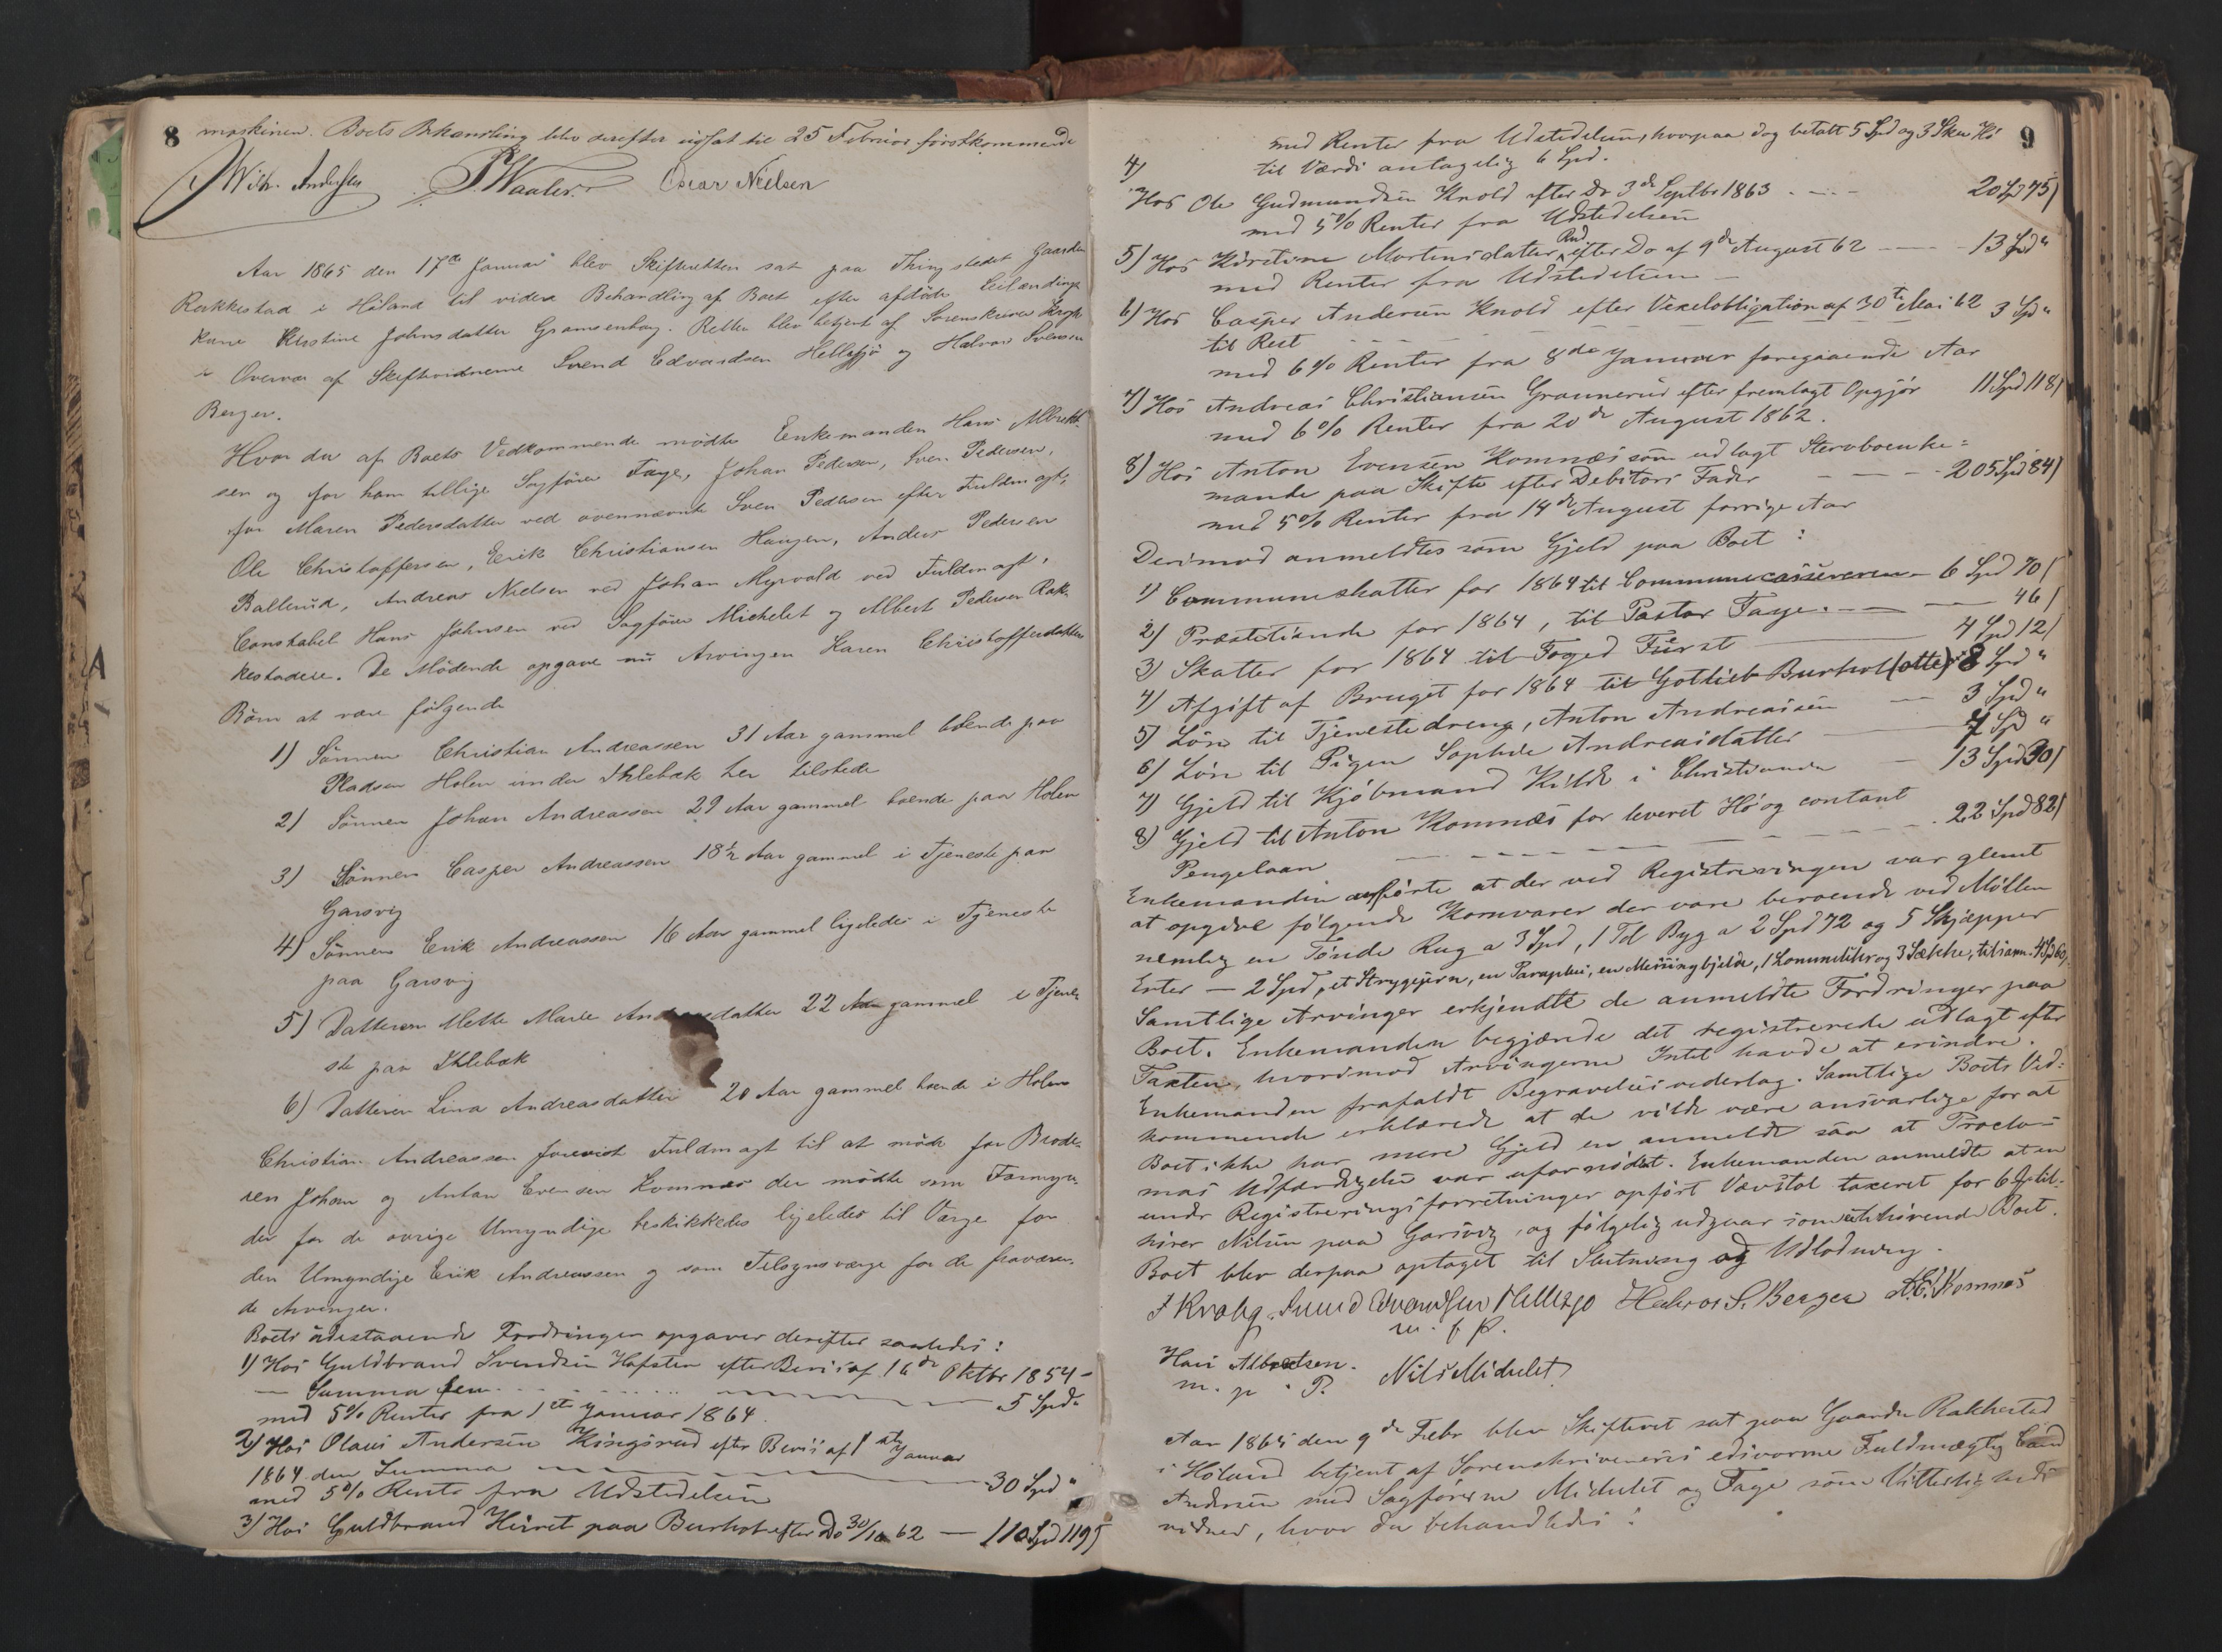 8
maskinen. Boets Behandling blev derefter udsat til 25 Februar förstkommende
Wilh. Andersen Oscar Nielsen
Aar 1865 den 17de Januar blev Skifteretten sat paa Thingstedet Gaarden
Rakkestad i Höland til videre Behandling af Boet efter afdöde Leilændings
kone Kirstine Johnsdatter Gramsenhaug. Retten blev betjent af Sorenskriver
i Overvær af Skiftevidnerne Svend Edvardsen Hellesjö og Halvor Svensen
Berger.
Hvor da af Boets Vedkommende mødte Enkemanden Hans Albrekt-
sen og for ham tillige Sagförer Faye, Johan Pedersen, Sven Pedersen,
for Maren Pedersdatter ved ovennævnte Sven Pedersen efter Fuldmagt,
Ole Christoffersen, Erik Christiansen Haugen, Anders Pedersen
Ballerud, Andreas Nielsen ved Johan Myrvold ved Fuldmagt,
Constabel Hans Johnsen ved Sagförer Michelet og Albert Pedersen Rak-
kestadeie. De Mödende opgave nu Arvingen Karen Christoffersdatters
Börn at være fölgende
1) Sönnen Christian Andreassen 31 Aar gammel boende paa
Pladsen Holen under Ihlebæk her tilstede
2) Sönnen Johan Andreassen 29 Aar gammel boende paa Holen
3) Sönnen Casper Andreassen 18½ Aar gammel i Tjeneste paa
Garsvig
4) Sönnen Erik Andreassen 16 Aar gammel ligeledes i Tjeneste
paa Garsvig
5) Datteren Mette Marie Andreasdatter 22 Aar gammel i Tjene-
ste paa Ihlebæk
6) Datteren Lina Andreasdatter 20 Aar gammel boende i Holen
Christian Andreassen foreviste Fuldmagt til at möde for Brode-
ren Johan og Anton Evensen Komnæs der mödte som Formyn-
der for de övrige Umyndige beskikkedes ligeledes til Værge for
den Umyndige Erik Andreassen og som Tilsynsværge for de fraværen-
de Arvinger.
Boets udestaaende Fordringer opgaves derefter saaledes:
1) Hos Guldbrand Svendsen Hafsten efter Bevis af 16de Oktbr 1854 -
Summa fem - 5 Spd "
med 5% Renter fra 1ste Januar 1864.
2) Hos Olaus Andersen Kingsrud efter Bevis af 1ste Januar
1864 den Summa 30 Spd "
med 5% Rente fra Udstedelsen
3) Hos Guldbrand Huset paa Burhol efter Do 30/10 62 — 110 Spd 119 ſ
9
med Renter fra Udstedelsen, hvorpaa dog betalt 5 Spd og 3 Hö
til Værdi antagelig 6 Spd.
4)
Hos Ole Gudmundsen Knold efter Do 3de Septbr 1863 - 20 Spd 75 ſ
med 5% Renter fra Udstedelsen
5) Hos Kirstine Mortensdatter Rud efter Do af 9de August 62 — 13 Spd "
med Renter fra Udstedelsen —
6) Hos Casper Andersen Knold efter Vexelobligation af 30te Mai 62 3 Spd "
til Rest
med 6% Renter fra 8de Januar foregaaende Aar
7) Hos Andreas Christiansen Grannerud efter fremlagt Opgjör 11 Spd 118 ſ
med 6% Renter fra 20de August 1862.
8) Hos Anton Evensen Komnæs som udlagt Stervboenke=
mande paa Skifte efter Debitors Fader - 205 Spd 84 ſ
med 5% Renter fra 14de August forrige Aar
Derimod anmeldtes som Gjeld paa Boet:
1) Communeskatter for 1864 til Communecassereren - 6 Spd 70 ſ
2) Præstetiende for 1864, til Pastor Faye. — 46 ſ
3) Skatter for 1864 til Foged Fürst — 4 Spd 12 ſ
4) Afgift af Bruget for 1864 til Gotlieb Burhol (otte) 8 Spd "
5) Lön til Tjenestedreng, Anton Andreassen — 3 Spd "
6) Lön til Pigen Sophie Andreasdatter — 4 Spd "
7) Gjeld til Kjöbmand Kilde i Christiania — 13 Spd 30 ſ
8) Gjeld til Anton Komnæs for leveret Hö og contant
Pengelaan - 22 Spd 82 ſ
Enkemanden anförte at der ved Registreringen var glemt
at opgive fölgende Kornvarer der vare beroende ved Möllen
nemlig en Tönde Rug a 3 Spd, 1 Td Byg a 2 Spd 72 og 5 Skjæpper
Erter — 2 Spd, et Strygejern, en Paraplui, en Messingbjelde, 1 Lommeuhr og 3 Sække, tilsamm. 4 Spd 60,
Samtlige Arvinger erkjendte de anmeldte Fordringer paa
Boet. Enkemanden begjærede det registrerede udlagt efter
Taxten, hvorimod Arvingerne Intet havde at erindre.
Enkemanden frafaldt Begravelsesvederlag. Samtlige Boets Ved=
kommende erklærede at de vilde være ansvarlige for at
Boet ikke har mere Gjeld en anmeldt saa at Procla=
mas Udfærdigelse var ufornödent. Enkemanden anmeldte at en
under Registreringsforretninger opfört Vævstol taxeret for 6 ſ til-
hörer Nilsen paa Garsvig, og fölgelig udgaar som uhhörende Boet.
Boet blev derpaa optaget til Slutning og Udlodning.
Svend Evendsen Hellesjo Halvor S. Berger A.E. Komnæs
m. f. P.
Hans Albretsen. Nils Michelet
m. p. P.
Aar 1865 den 9de Febr blev Skifteret sat paa Gaarden Rakkestad
i Höland betjent af Sorenskriverens edsvorne Fuldmægtig Cand
Andersen med Sagförerne Michelet og Faye som Vitterligheds
vidner, hvor da behandledes: